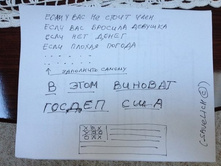 ЕСЛИ У ВАС НЕ СТОИТ ЧЛЕН
ЕСЛИ ВАС БРОСИЛА ДЕВУШКА
ЕСЛИ НЕТ ДЕНЕГ
ЕСЛИ ПЛОХАЯ ПОГОДА
ЗАПОЛНИТЕ САМИ
В ЭТОМ ВИНОВАТ
ГОСДЕП США